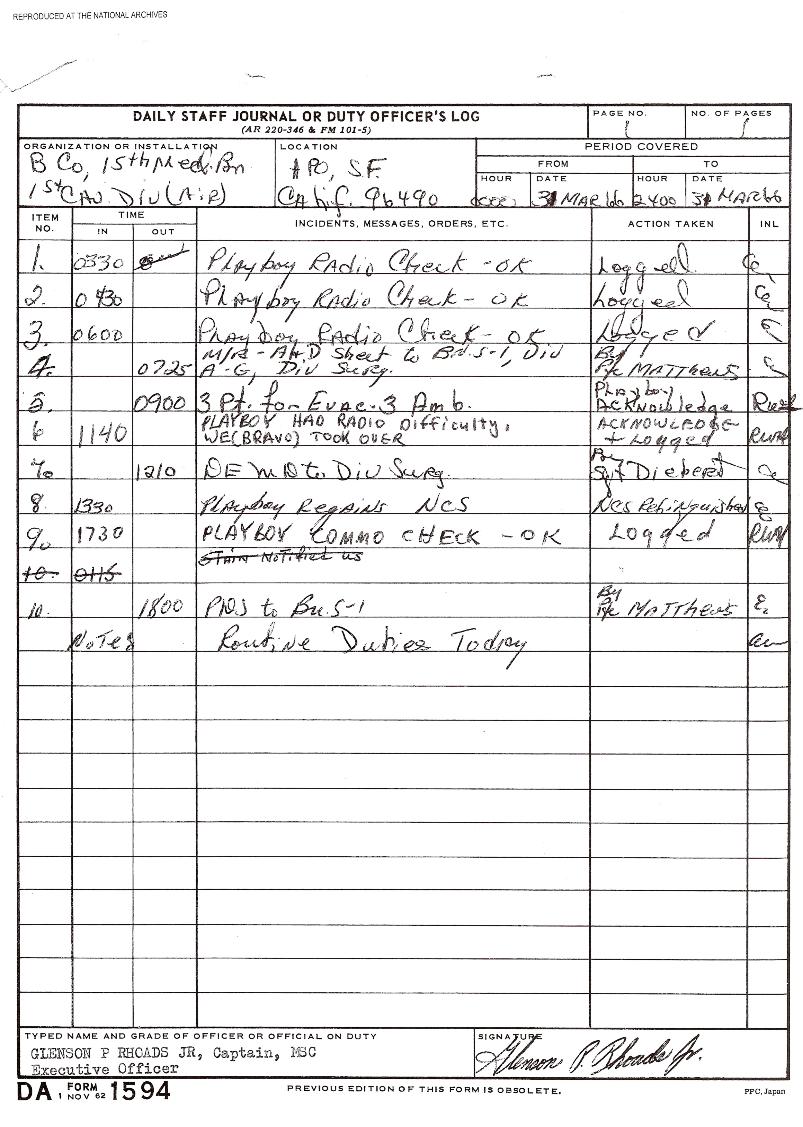 REPRODUCED AT THE NATIONAL ARCHIVES
DAILY STAFF JOURNAL OR DUTY OFFICER'S LOG
(AR 220-346 & FM 101-5)
PAGE NO.
1
NO. OF PAGES
1
ORGANIZATION OR INSTALLATION
B Co, 15th Med. Bn
1st CAV. DIV (AiR)
LOCATION
APO, S.F.
CAlif. 96490
PERIOD COVERED
FROM TO
HOUR DATE HOUR DATE
31 MAR 66 2400 31 MAR 66
ITEM NO. TIME IN OUT INCIDENTS, MESSAGES, ORDERS, ETC. ACTION TAKEN INL
1. 0330 Playboy RADio Check - OK Logged
2. 0430 Playboy RADio Check - OK Logged
3. 0600 Playboy RADio Check - OK Logged
4. 0725 M/R - A&D Sheet to Bn. S-1, Div By
A-G, Div Surg. Pfc MATTHEWS
5. 0900 3 Pt. for Evac. 3 Amb. Playboy
ACKNowledge
6 1140 PLAYBOY HAD RADIO Difficulty, ACKNOWLEDGE
WE (BRAVO) TOOK OVER + Logged RWH
7. 1210 to Div Surg. By
Sgt Diebert
8. 1330 Playboy RegAiNs NCS NCS Relinquished
9. 1730 PLAYBOY COMMO CHECK - OK Logged RWH
10. 0115 Notified us
10. 1800 to Bn. S-1 By
Pfc MATTHEWS
NoTes Routine Duties Today
TYPED NAME AND GRADE OF OFFICER OR OFFICIAL ON DUTY
GLENSON P RHOADS JR, Captain, MSC
Executive Officer
SIGNATURE
Glenson P. Rhoads Jr.
DA FORM 1 NOV 62 1594
PREVIOUS EDITION OF THIS FORM IS OBSOLETE.
PPC, Japan